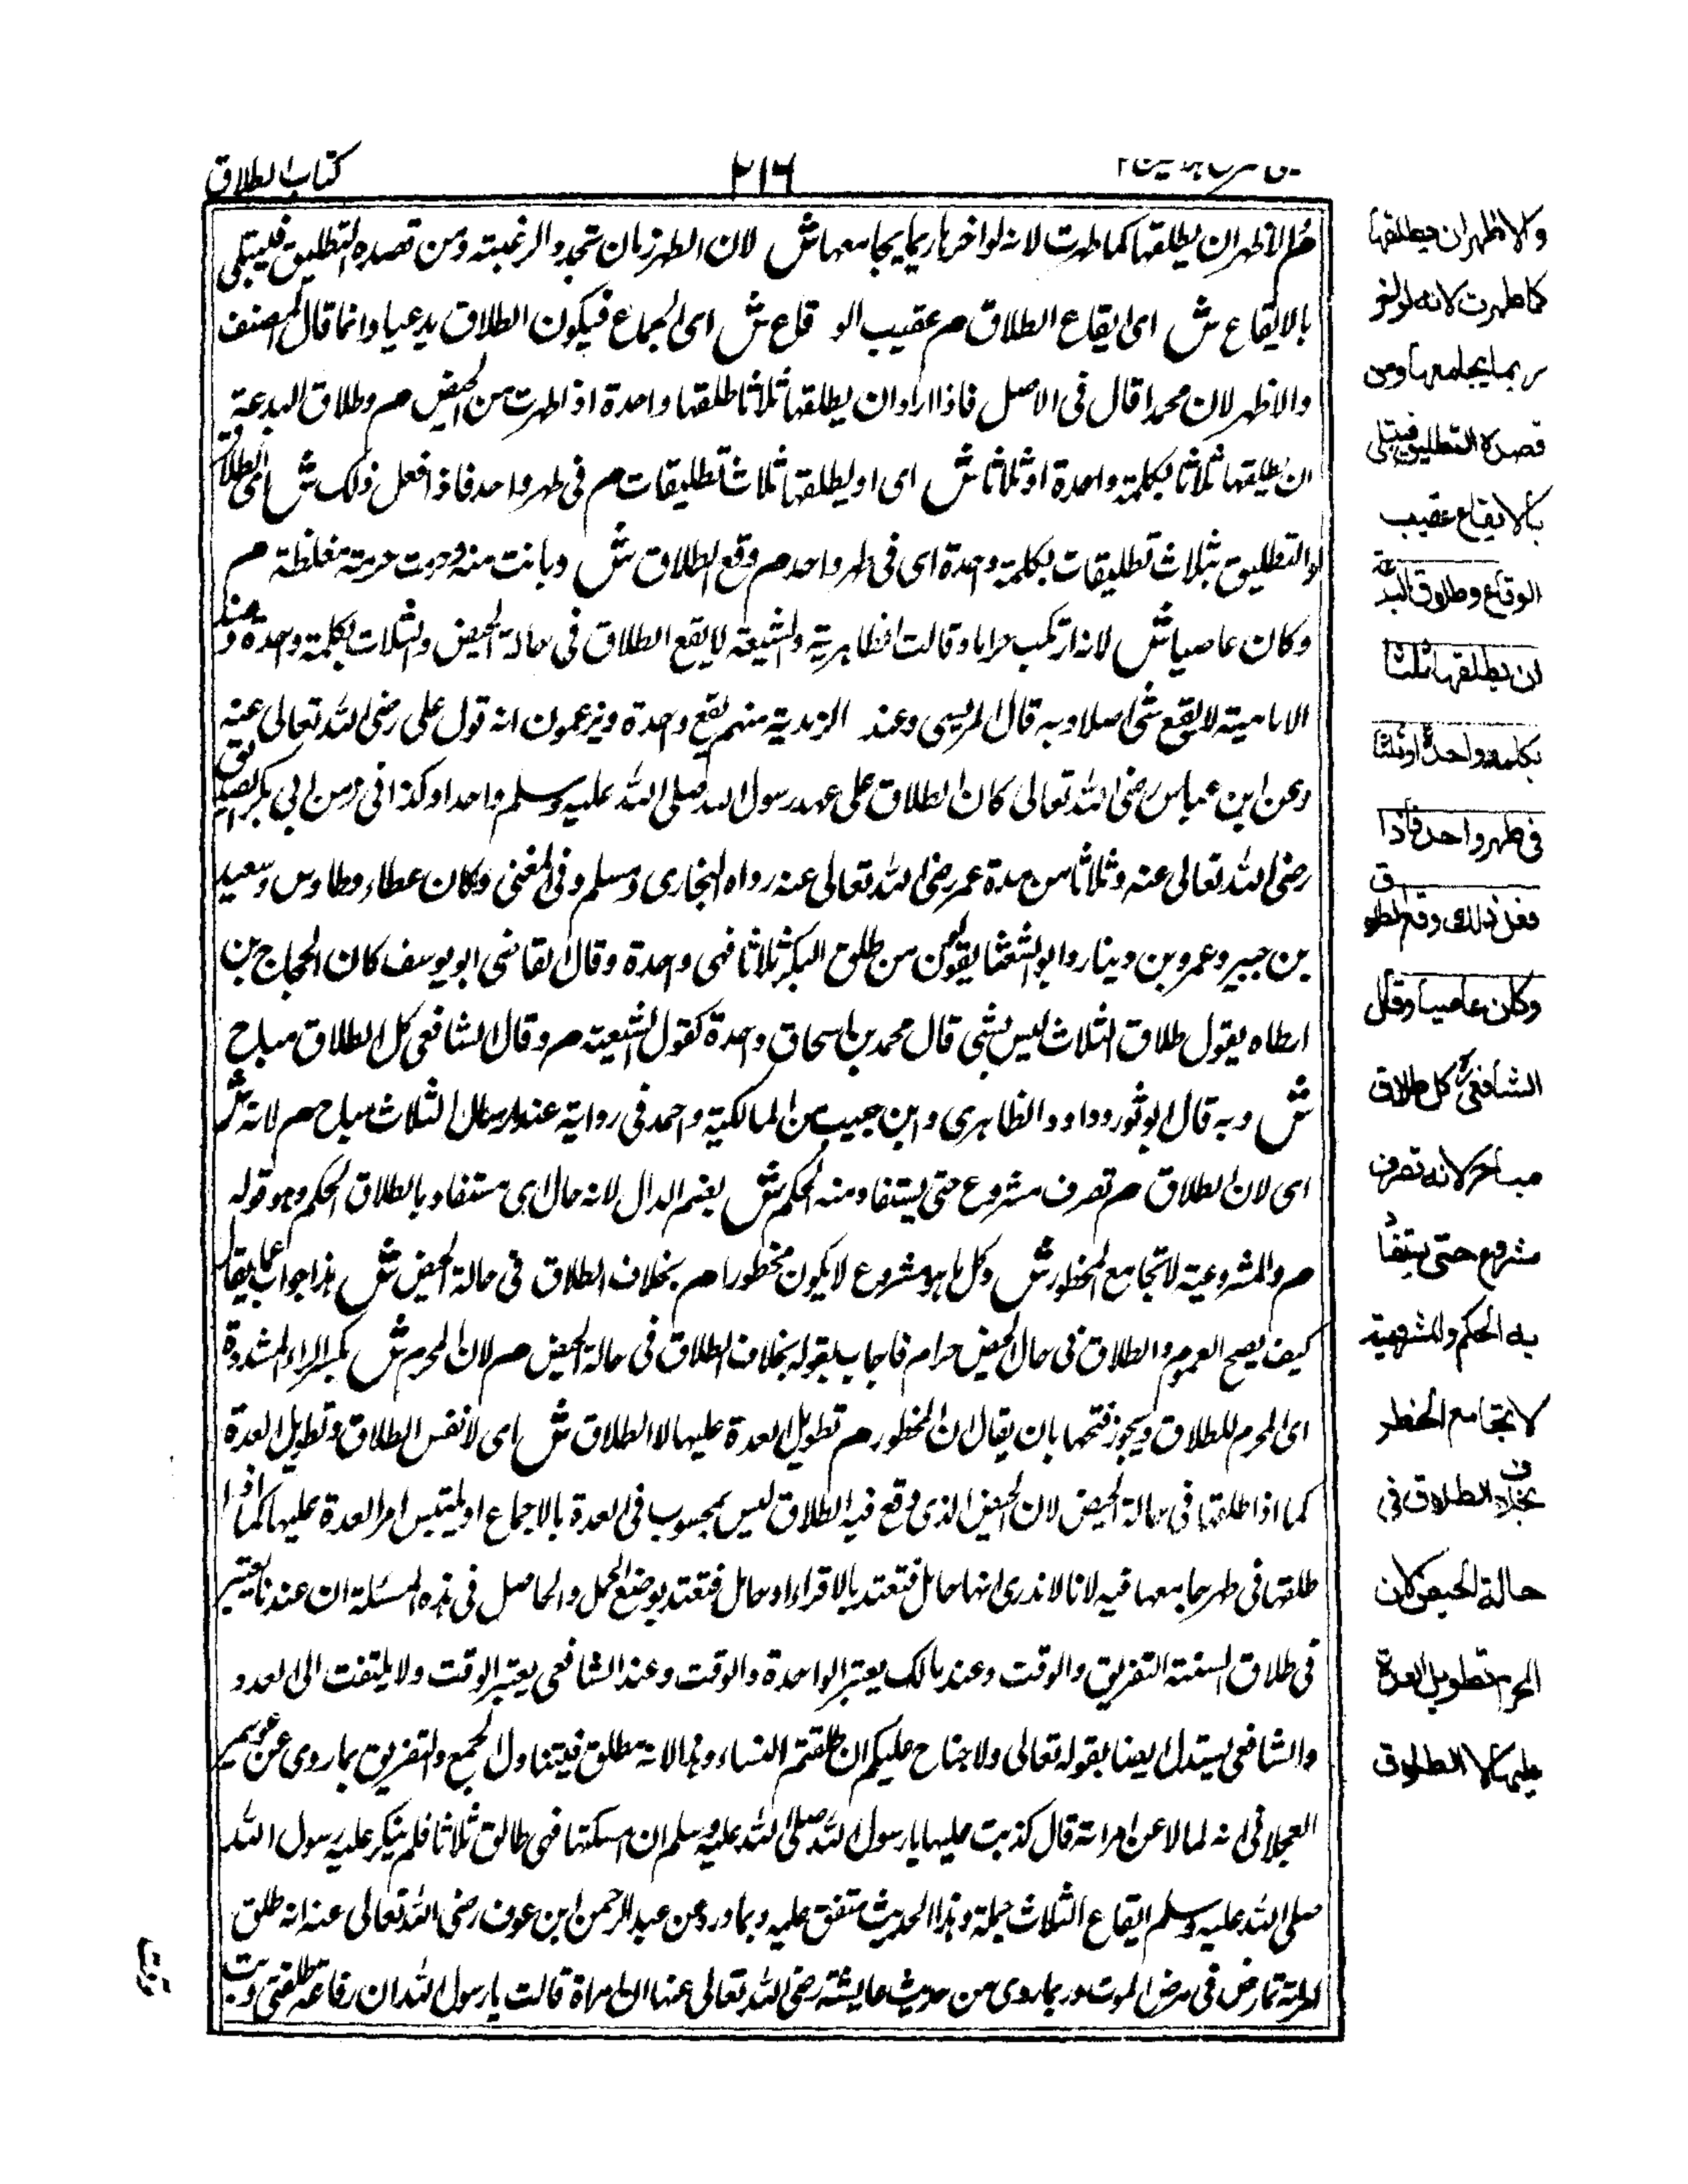 كتاب الطلاق
٢١٦
م والاظهر ان يطلقها كما طهرت لانه لو اخر ربما يجامعها ش لان الطهر زمان تجدد الرغبة ومن قصده التطليق فيبتلى
بالايقاع ش اى ايقاع الطلاق م عقيب الوقاع ش اى الجماع فيكون الطلاق بدعيا وانما قال المصنف
والاظهر لان محمدا قال فى الاصل فاذا اراد ان يطلقها ثلاثا طلقها واحدة اذا طهرت من الحيض م وطلاق البدعة
ان يطلقها ثلاثا بكلمة واحدة او ثلاثا ش اى او يطلقها ثلاث تطليقات م فى طهر واحد فاذا فعل ذلك ش اى الطلاق
او التطليق بثلاث تطليقات بكلمة واحدة اى فى طهر واحد م وقع الطلاق ش وبانت منه وحرمت حرمة مغلظة م
وكان عاصيا ش لانه ارتكب حراما وقالت الظاهرية والشيعة لا يقع الطلاق فى حالة الحيض والثلاث بكلمة واحدة وعند
الامامية لا يقع شئ اصلا وبه قال المريسى وعند الزيدية منهم يقع واحدة ويزعمون انه قول على رضى الله تعالى عنه
وعن ابن عباس رضى الله تعالى كان الطلاق على عهد رسول الله صلى الله عليه وسلم واحدا وكذا فى زمن ابى بكر الصديق
رضى الله تعالى عنه وثلاثا من مدة عمر رضى الله تعالى عنه رواه البخارى ومسلم وفى المغنى وكان عطاء وطاوس وسعيد
بن جبير وعمرو بن دينار وابو الشعثا يقولون من طلق البكر ثلاثا فهى واحدة وقال القاضى ابو يوسف كان الحجاج بن
ارطاه يقول طلاق الثلاث ليس بشى قال محمد بن اسحاق واحدة كقول الشيعة م وقال الشافعى كل الطلاق مباح
ش وبه قال ابو ثور وداود الظاهرى وابن حبيب من المالكية واحمد فى رواية عند ارسال الثلاث مباح م لانه ش
اى لان الطلاق م تصرف مشروع حتى يستفاد منه الحكم ش بضم الدال لانه حال اى مستفاد بالطلاق الحكم وهو قوله
م والمشروعية لا تجامع المحظور ش وكل ما هو مشروع لا يكون محظورا م بخلاف الطلاق فى حالة الحيض ش هذا جواب عما يقال
كيف يصح العموم والطلاق فى حال الحيض حرام فاجاب بقوله بخلاف الطلاق فى حالة الحيض م لان المحرم ش بكسر الراء المشددة
اى المحرم للطلاق ويجوز فتحها بان يقال ان المحظور م تطويل العدة عليها لا الطلاق ش اى لا نفس الطلاق وتطويل العدة
كما اذا طلقها فى حالة الحيض لان الحيض الذى وقع فيه الطلاق ليس بمحسوب فى العدة بالاجماع او يلتبس امر العدة عليها كما اذا
طلقها فى طهر جامعها فيه لانا لا ندرى انها حائل فتعتد بالاقراء او حامل فتعتد بوضع الحمل والحاصل فى هذه المسئلة ان عندنا يعتبر
فى طلاق السنة التفريق والوقت وعند مالك يعتبر الواحدة والوقت وعند الشافعى يعتبر الوقت ولا يلتفت الى العدد
والشافعى يستدل ايضا بقوله تعالى ولا جناح عليكم ان طلقتم النساء وهذا لانه مطلق فيتناول الجمع والتفريق بما روى عن عويمر
العجلانى انه لما لاعن امراته قال كذبت عليها يا رسول الله صلى الله عليه وسلم ان امسكتها فهى طالق ثلاثا فلم ينكر عليه رسول الله
صلى الله عليه وسلم ايقاع الثلاث جملة وهذا الحديث متفق عليه وبما ورد عن عبد الرحمن ابن عوف رضى الله تعالى عنه انه طلق
امراته تماضر فى مرض الموت وبما روى من حديث عايشة رضى الله تعالى عنها ان امراة قالت يا رسول الله ان رفاعة طلقنى وبت
والاظهر ان يطلقها
كما طهرت لانه لو اخر
ربما يجامعها ومن
قصده التطليق فيبتلى
بالايقاع عقيب
الوقاع وطلاق البدعة
ان يطلقها ثلثا
بكلمة واحدة او ثلثا
فى طهر واحد فاذا
فعل ذلك وقع الطلاق
وكان عاصيا وقال
الشافعى كل طلاق
مباح لانه تصرف
مشروع حتى يستفاد
به الحكم والمشروعية
لا تجامع الحظر
بخلاف الطلاق فى
حالة الحيض لان
المحرم تطويل العدة
عليها لا الطلاق